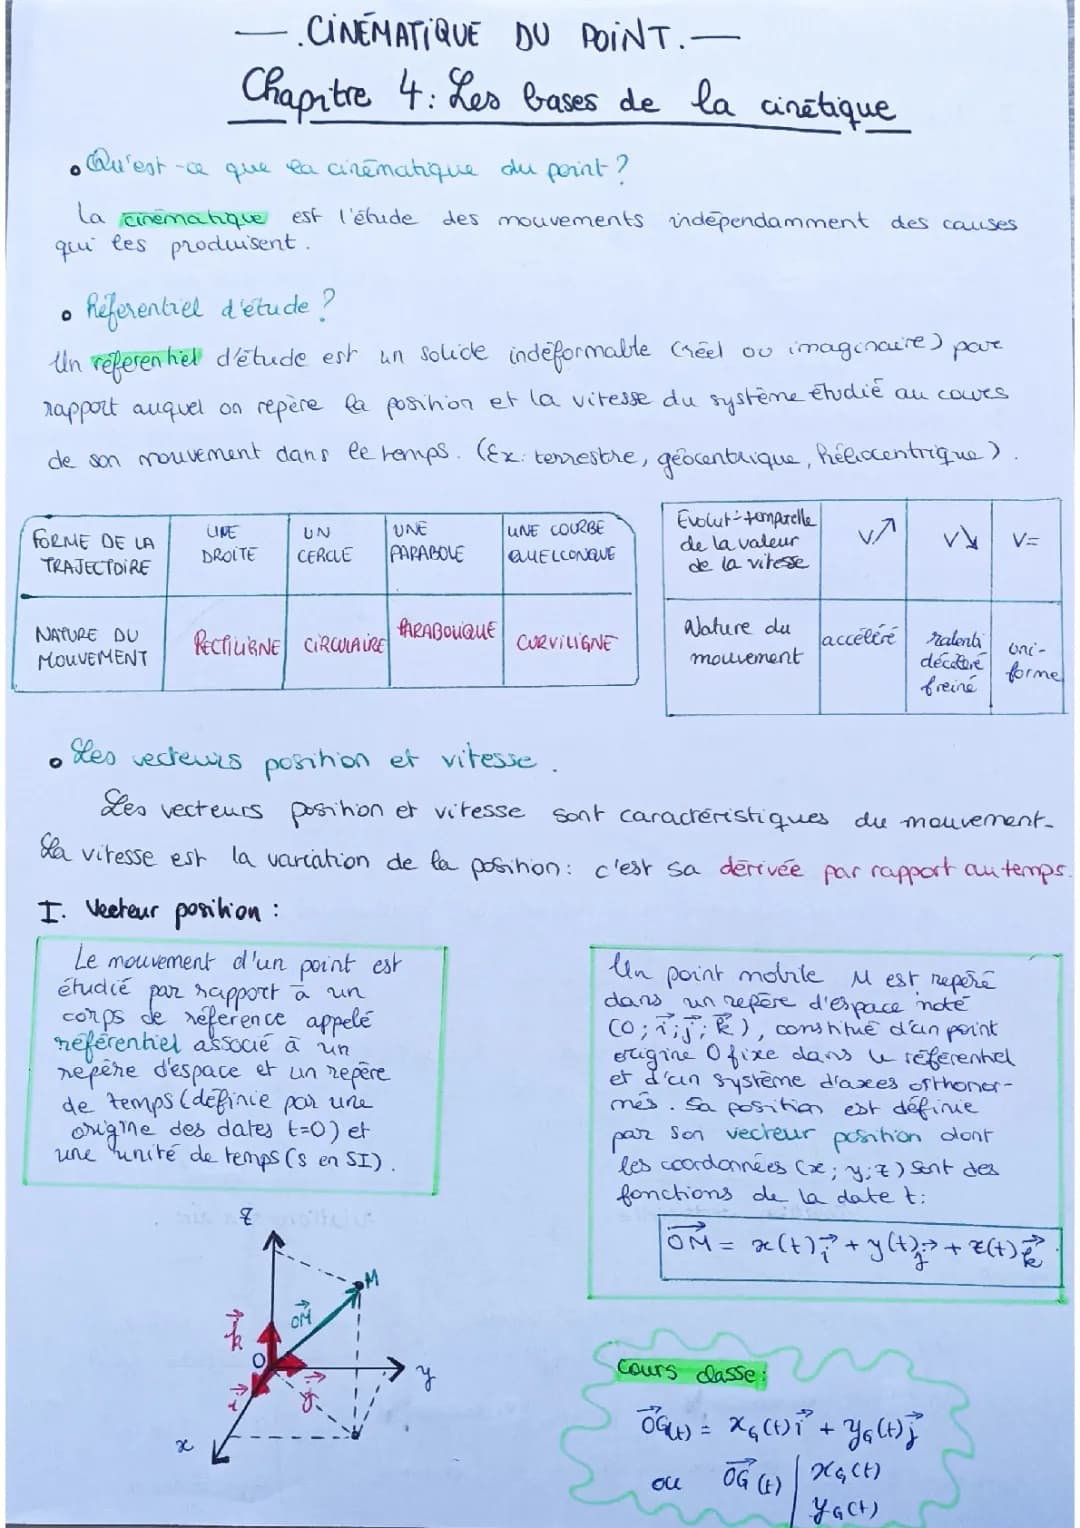 —.CINÉMATIQUE DU POINT.—
Chapitre 4: Les bases de la cinétique
• Qu'est-ce que la cinématique du point?
La cinématique est l'étude des mouvements indépendamment des causes
qui les produisent.
• Référentiel d'étude?
Un référentiel d'étude est un solide indéformable (réel ou imaginaire) par
rapport auquel on repère la position et la vitesse du système étudié au cours
de son mouvement dans le temps. (Ex: terrestre, géocentrique, héliocentrique).
FORME DE LA TRAJECTOIRE
UNE DROITE
UN CERCLE
UNE PARABOLE
UNE COURBE QUELCONQUE
NATURE DU MOUVEMENT
RECTILIGNE
CIRCULAIRE
PARABOLIQUE
CURVILIGNE
Evolut° temporelle
de la valeur
de la vitesse
V↗
V↘
V=
Nature du
mouvement
accéléré
ralenti
décéléré
freiné
uni-
forme
• Les vecteurs position et vitesse.
Les vecteurs position et vitesse sont caractéristiques du mouvement.
La vitesse est la variation de la position: c'est sa dérivée par rapport au temps.
I. Vecteur position:
Le mouvement d'un point est
étudié par rapport à un
corps de référence appelé
référentiel associé à un
repère d'espace et un repère
de temps (définie par une
origine des dates t=0) et
une unité de temps (s en SI).
Un point mobile M est repéré
dans un repère d'espace noté
(O; i⃗; j⃗; k⃗), constitué d'un point
origine O fixe dans le référentiel
et d'un système d'axes orthonor-
més. Sa position est définie
par son vecteur position dont
les coordonnées (x; y; z) sont des
fonctions de la date t:
OM⃗ = x(t)i⃗ + y(t)j⃗ + z(t)k⃗
z
M
OM⃗
k⃗
O
i⃗
j⃗
y
x
Cours classe:
OG⃗(t) = xG(t)i⃗ + yG(t)j⃗
ou OG⃗(t) | xG(t)
yG(t)